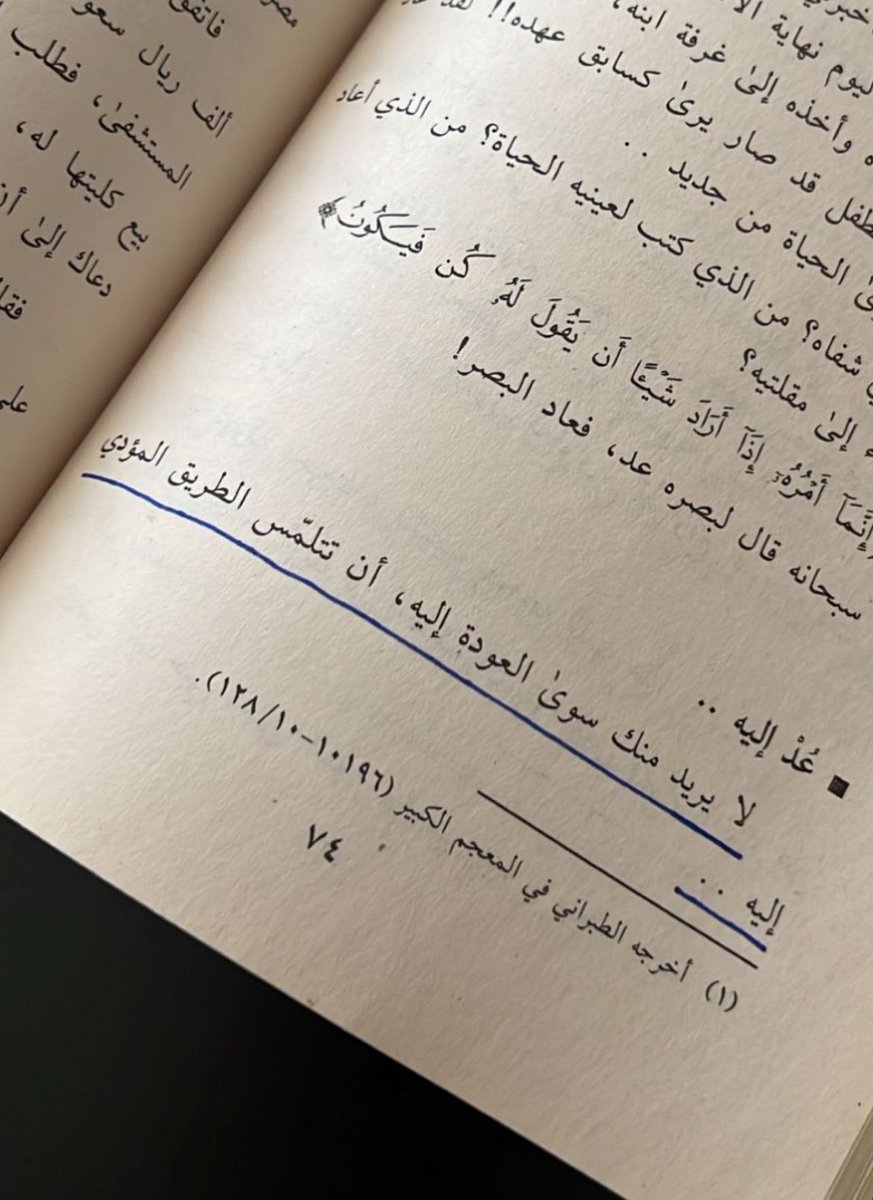 اليوم نهاية
وأخذه إلىٰ غرفة ابنه،
قد صار يرىٰ كسابق عهده!! لقد
الحياة من جديد ..
شفاه؟ من الذي كتب لعينيه الحياة؟ من الذي أعاد
إلىٰ مقلتيه؟
إِنَّمَآ أَمْرُهُۥٓ إِذَآ أَرَادَ شَيْـًٔا أَن يَقُولَ لَهُۥ كُن فَيَكُونُ﴾
سبحانه قال لبصره عد، فعاد البصر!
■ عُدْ إليه ..
لا يريد منك سوىٰ العودة إليه، أن تتلمّس الطريق المؤدي
إليه ..
(١) أخرجه الطبراني في المعجم الكبير (١٠١٩٦-١٠/١٢٨).
٧٤
ألف ريال
المستشفىٰ، فطلب
بيع كليتها له،
دعاك إلىٰ